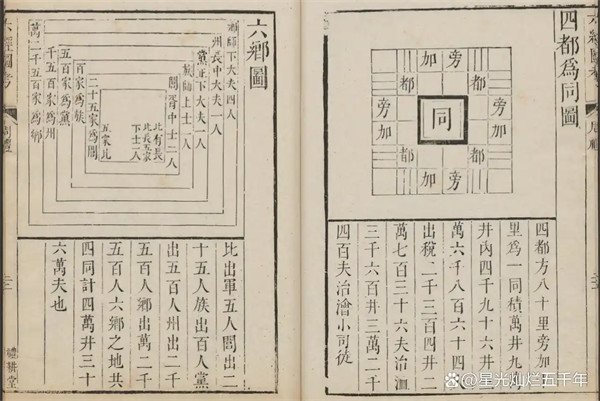 六經圖考
周禮
四都為同圖
旁加
旁加
旁加
旁加
都
都
都
都
同
四都方八十里旁加
里為一同積萬井九
井內四千九十六井
萬六千八百六十四
出稅二千三百四井二
萬七百三十六夫治洫
三千六百井三萬二千
四百夫治澮小司徒
六鄉圖
鄉師下大夫四人
州長中大夫一人
黨正下大夫一人
族師上士一人
閭胥中士一人
比有長
比長五家
下士一人
五家比
二十五家為閭
百家為族
五百家為黨
千五百家為州
萬二千五百家為鄉
比出軍五人閭出二
十五人族出百人黨
出五百人州出二千
五百人鄉出萬二千
五百人六鄉之地共
四同計四萬井三十
六萬夫也
六經圖考
周禮
禮耕堂
星光灿烂五千年